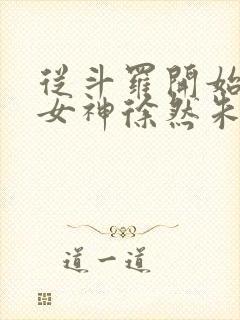 從斗羅開始
女神徐然朱
道一道